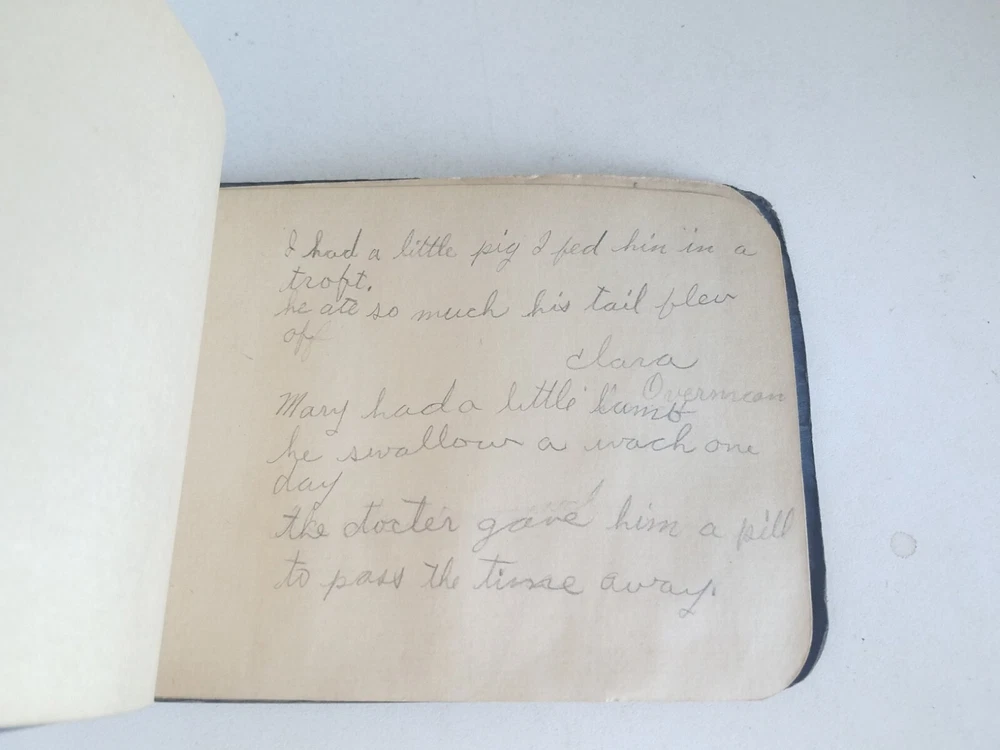 I had a little pig I fed hin in a
troft.
he ate so much his tail flew
off
Clara
Overmean
Mary had a little lamb
he swallow a wach one
day
the docter gave him a pill
to pass the time away.